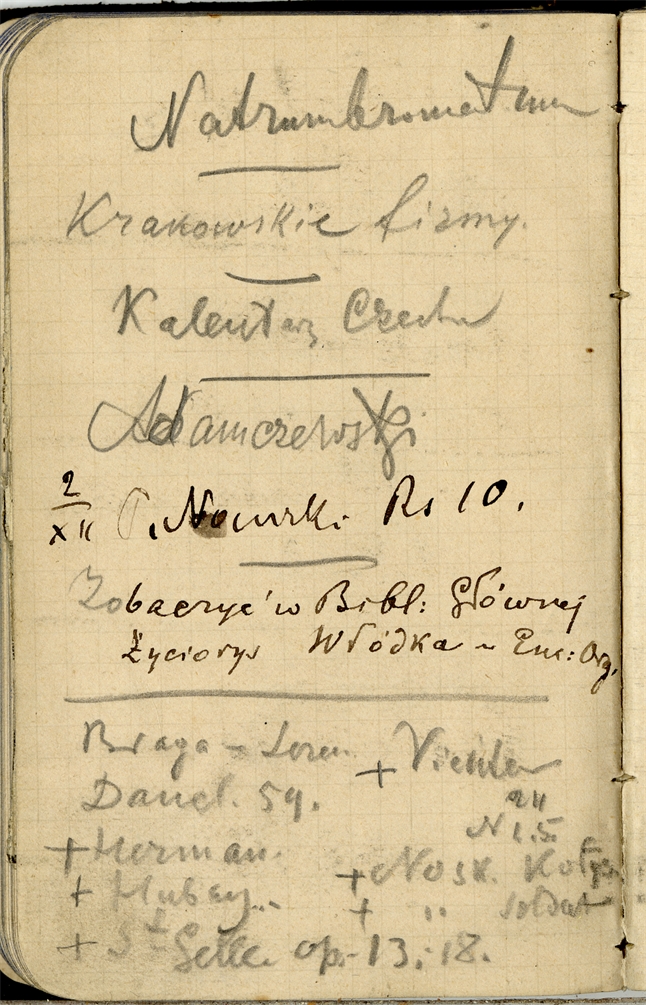 Natrumbromatum
Krakowskie firmy.
Kalentarz Czecha
Adamczewski
2/XII P. Nowski Rs 10.
Zobaczyć w Bibl: Głównej
Życiorys Włódka w Enc: Org.
Braga –
Dancl. 59.
24
N 1.5
+ Herman.
+ Hubay..
+ Nosk. Kołys
+ " soldat
+ St Gelle. op. 13.-18.